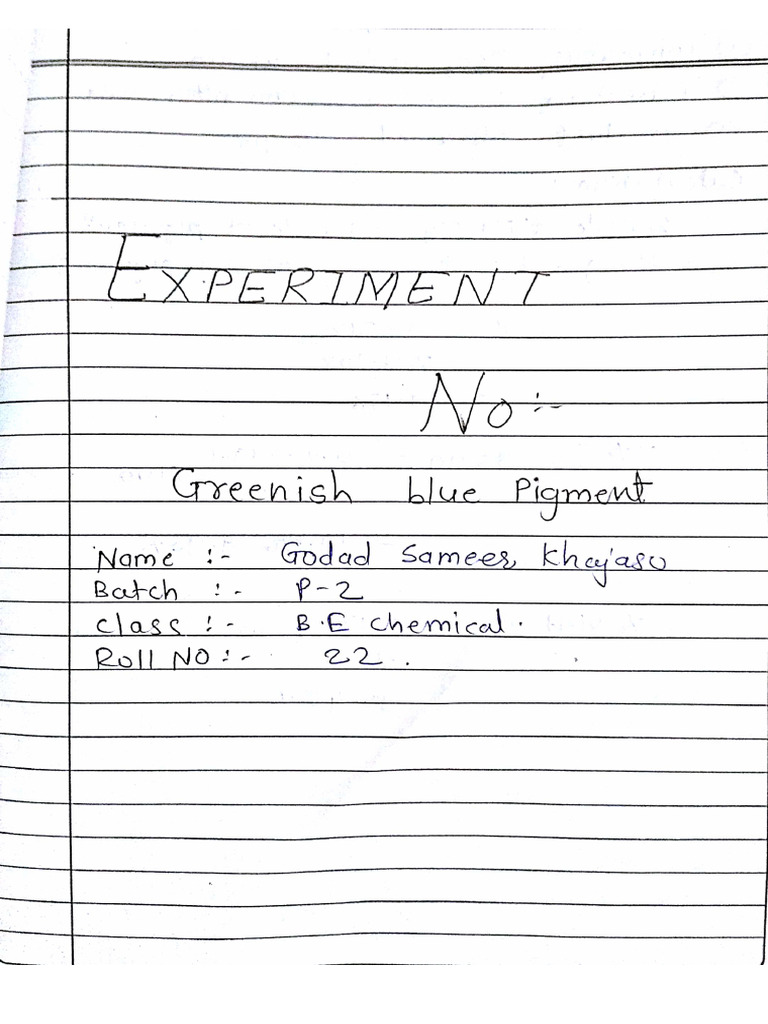 EXPERIMENT
No :-
Greenish blue Pigment
Name :- Godad Sameer Khajaso
Batch :- P-2
Class :- B.E Chemical.
Roll NO :- 22.